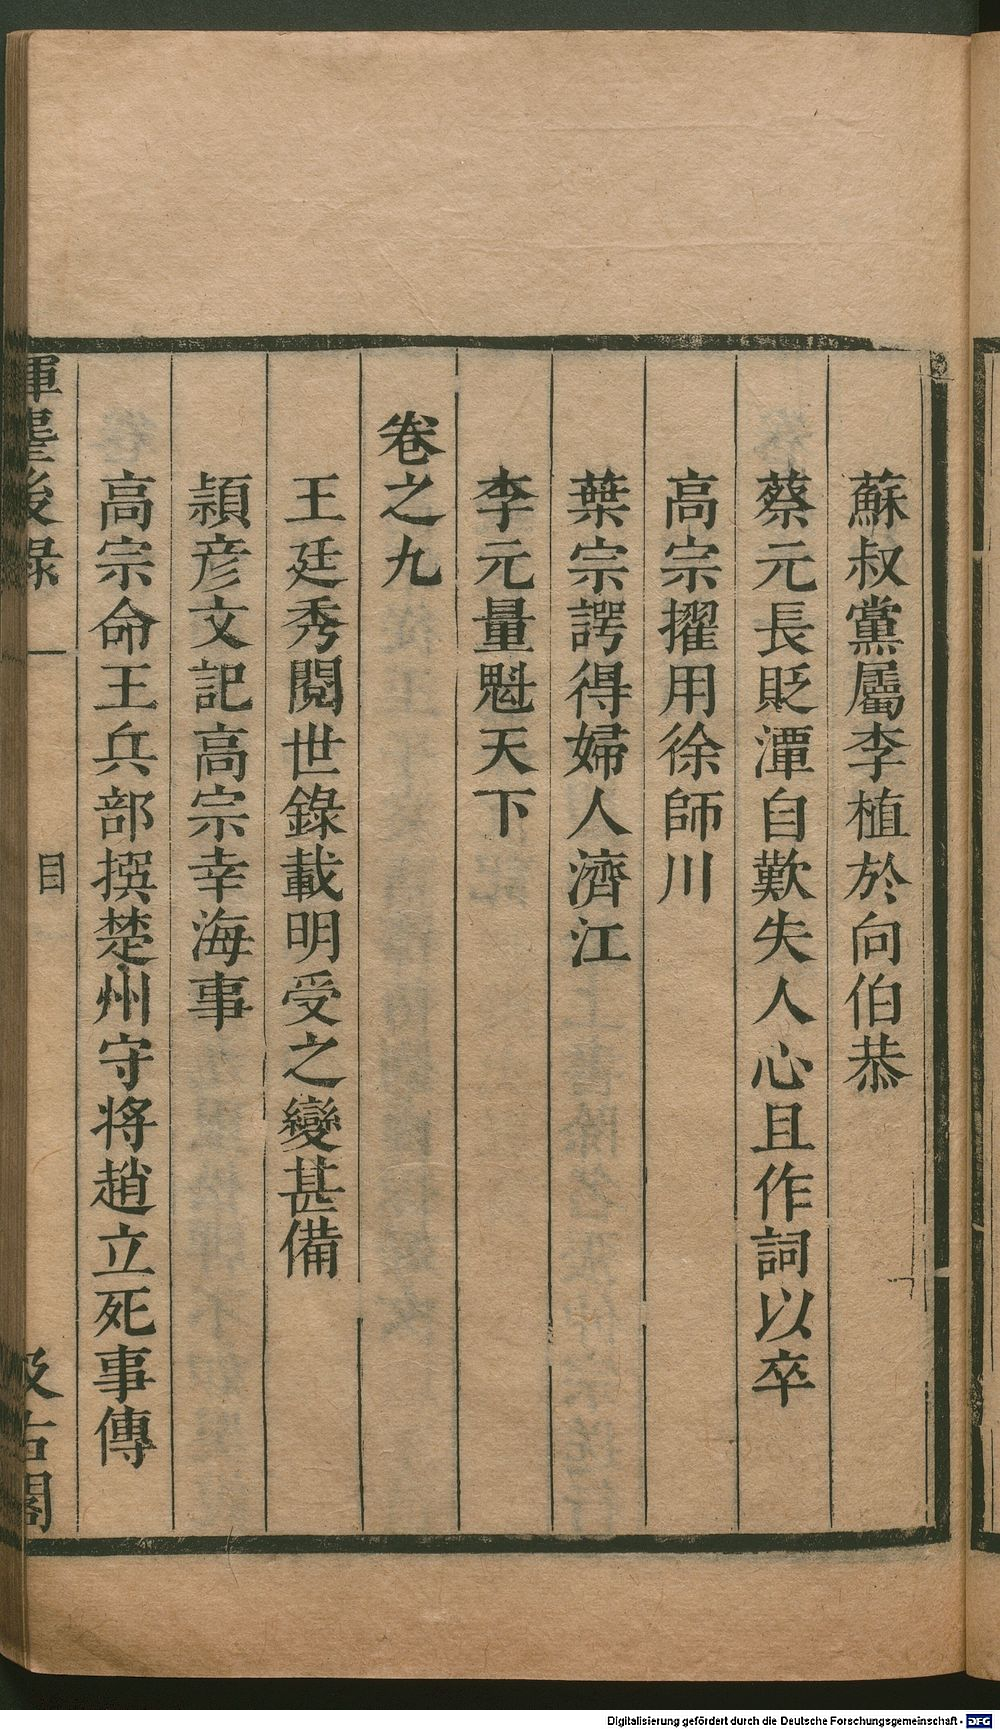 蘇叔黨屬李植於向伯恭
蔡元長貶潭自歎失人心且作詞以卒
高宗擢用徐師川
葉宗諤得婦人濟江
李元量魁天下
卷之九
王廷秀閱世錄載明受之變甚備
穎彥文記高宗幸海事
高宗命王兵部撰楚州守將趙立死事傳
揮麈後錄 目 汲古閣
Digitalisierung gefördert durch die Deutsche Forschungsgemeinschaft - DFG